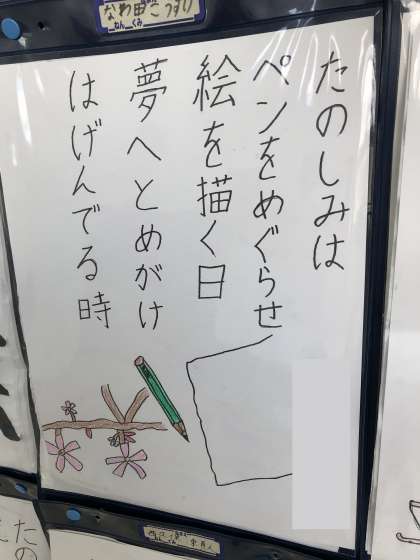 たのしみは
ペンをめぐらせ
絵を描く日
夢へとめがけ
はげんでる時